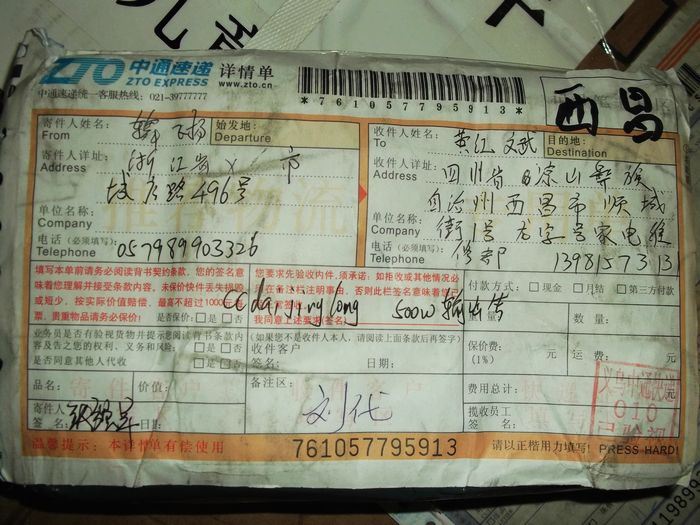 ZTO 中通速递 详情单
ZTO EXPRESS www.zto.cn
中通速递统一客服热线: 021-39777777
*761057795913*
西昌
寄件人姓名: 始发地:
From Departure
收件人姓名: 黄江 文武 目的地:
To Destination
寄件人详址: 浙江省 X 市
Address
城店路496号
收件人详址: 四川省凉山彝族
Address
自治州西昌市顺城
单位名称:
Company
单位名称: 街1号 龙字号家电维
Company
电话(必须填写): 057989903326
Telephone
电话(必须填写): 修部 1398157313
Telephone
填写本单前请务必阅读背书契约条款, 您的签名意
味着您理解并接受条款内容, 未保价快件丢失损毁
或短少, 按实际价值赔偿, 最高不超过1000元人民
币, 贵重物品请务必保价! 是否保价: □是 □否
您要求先验收内件, 须承诺: 如拒收或其他情况必
须在备注栏注明事由, 否则此栏签名意味着您已
签收。
我同意上述要求(签名)
danjinglong 500W
付款方式: □现金 □月结 □第三方付款
数量: 重量:
业务员是否有验视货物并提示您阅读背书条款内
容及告之您的权利、义务和风险: □是 □否
是否同意其他人代收 □是 □否
(如果您不是收件人本人, 请阅读上面条款后再签字)
收件客户
签名: 日期:
保价费: 运费: 元
(1%)
品名: 价值:
备注区:
刘代
费用总计: 元
寄件人
签名: 日期:
揽收员工
签名:
义乌中通快递
010
已验视
温馨提示: 本详情单有偿使用
761057795913
请以正楷用力填写! PRESS HARD!